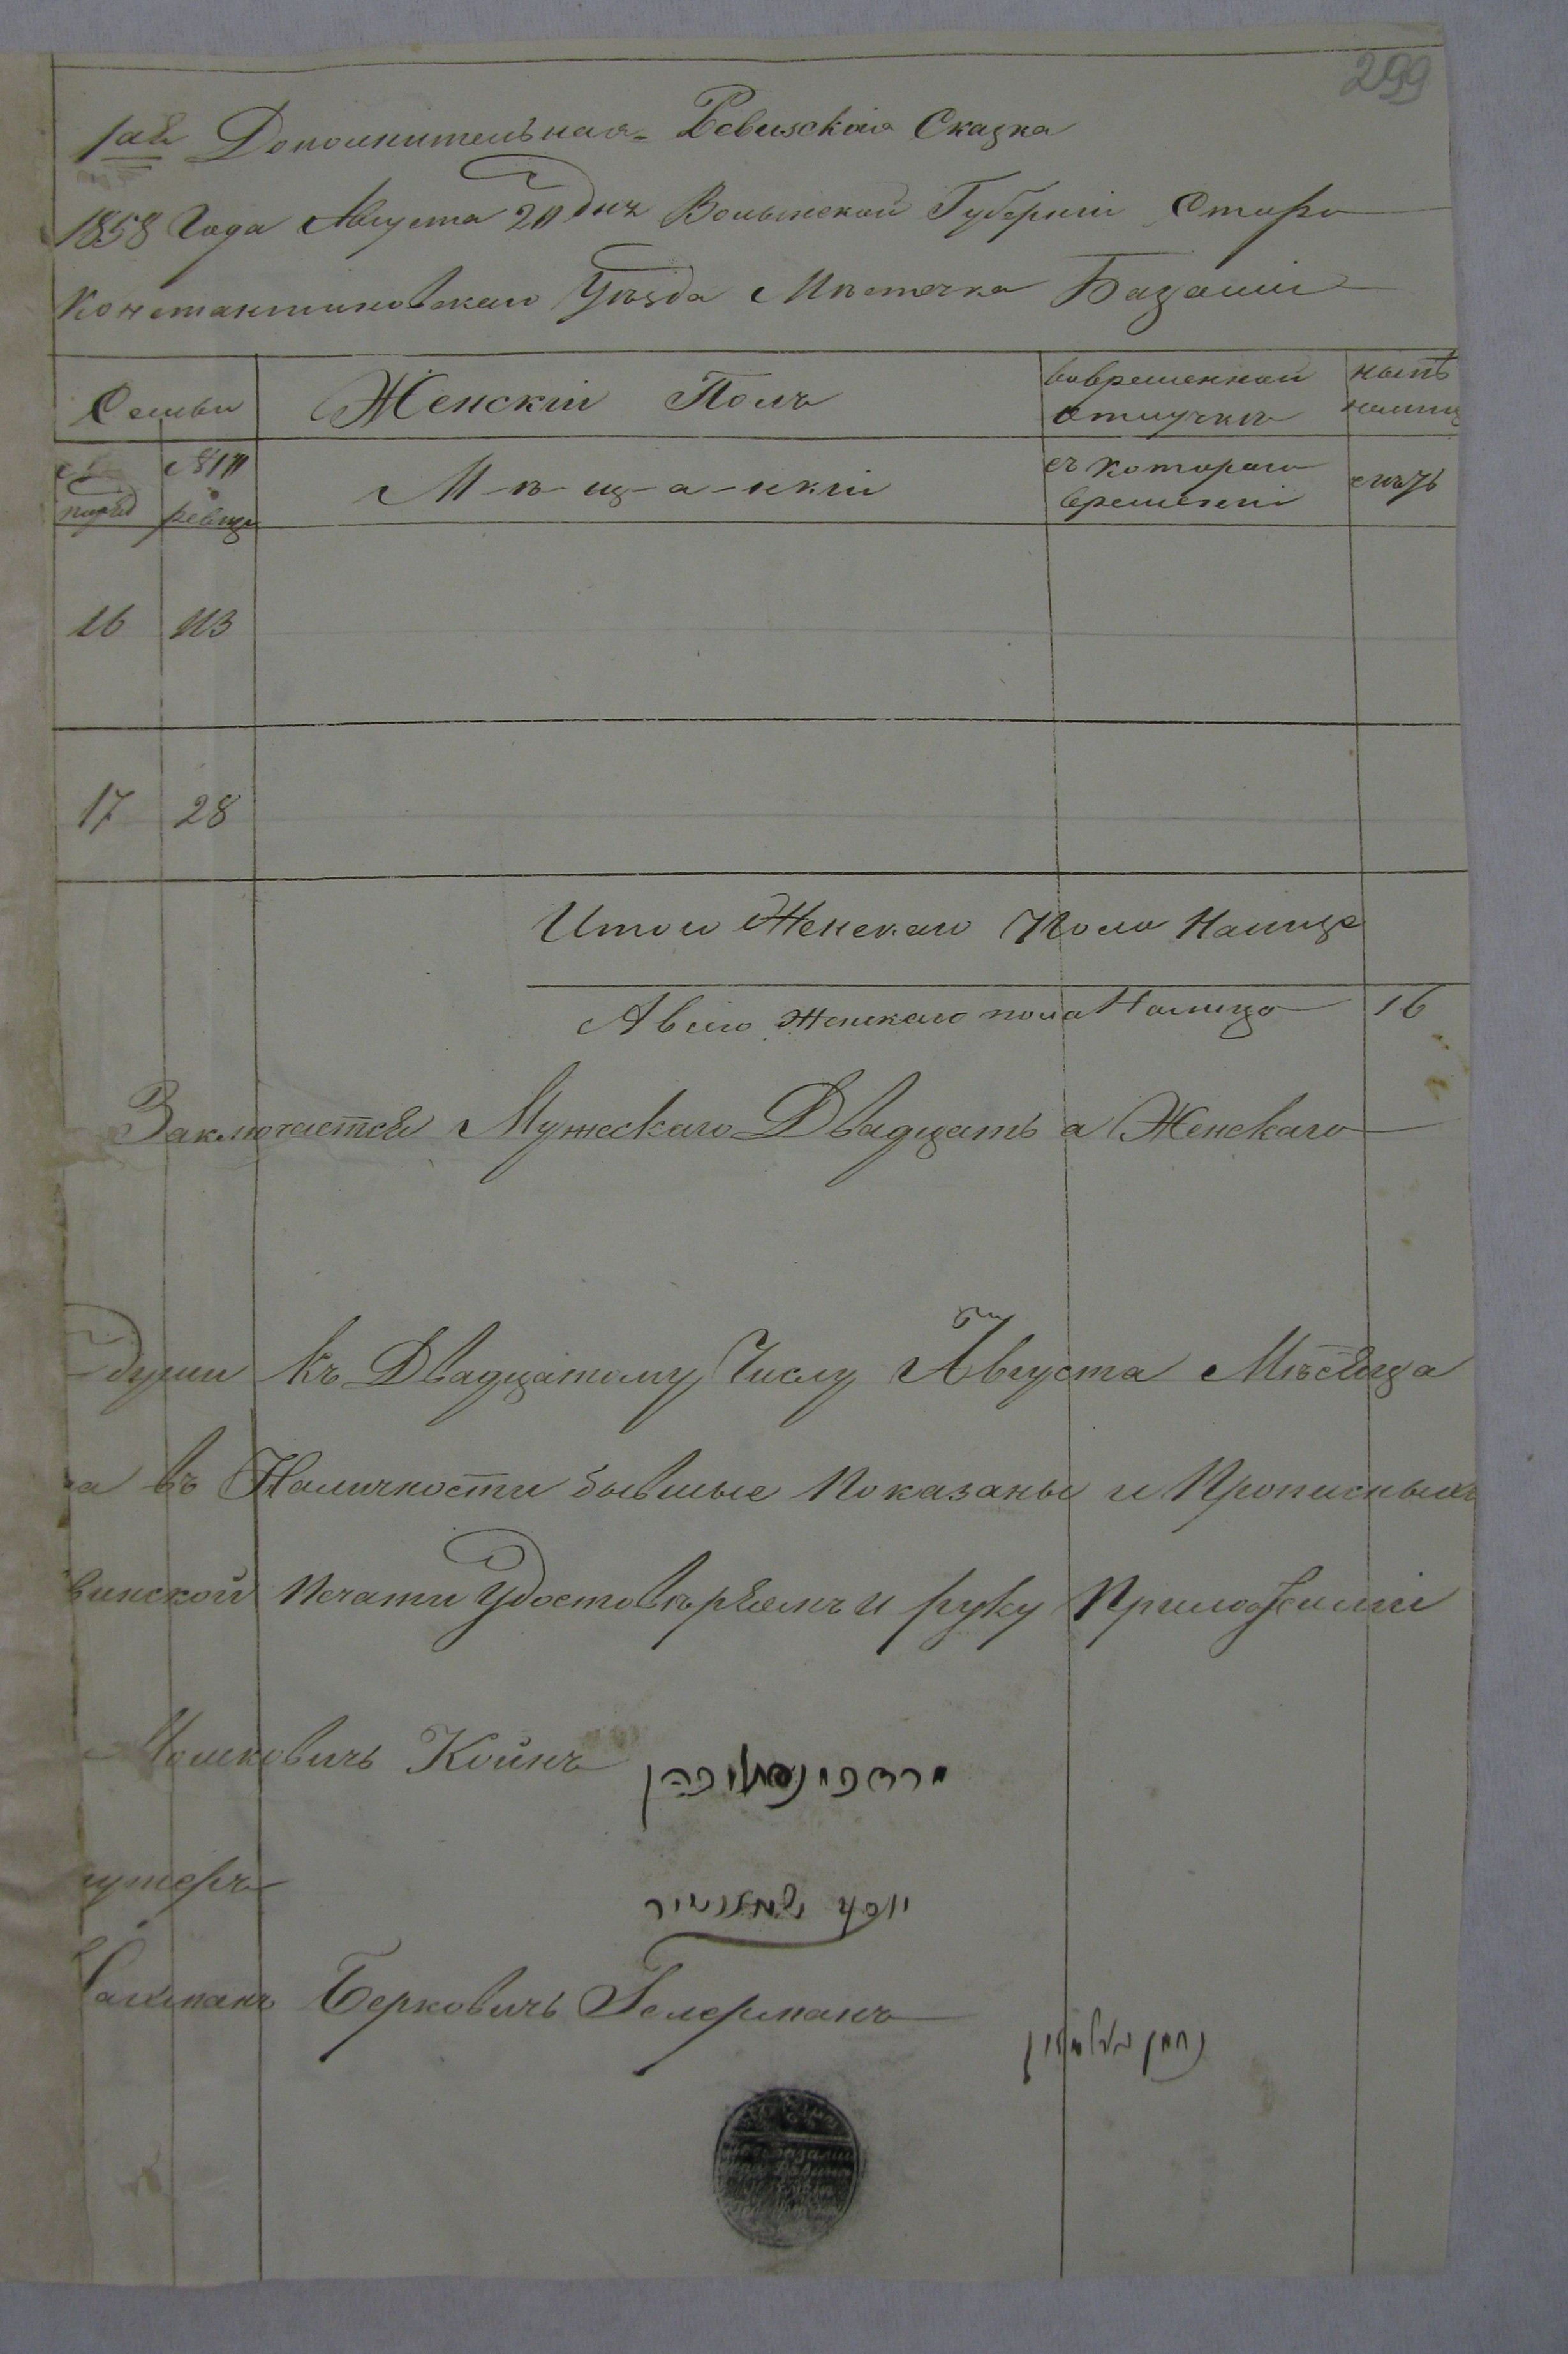 299
1ая Дополнительная Ревизская Сказка
1858 Года Августа 20 дня Волынской Губерніи Старо
Константиновскаго Уѣзда Мѣстечка Базаліи
Семьи Женскій Полъ вовременной отлучкѣ нынѣ налицо
ревизіи М-ѣ-щ-а-нкіи съ котораго времени
16 113
17 28
Итого Женскаго Пола Налицо
А всего женскаго пола Налицо 16
Заключается Мужескаго Двадцать а Женскаго
души къ Двадцатому Числу Августа Мѣсяца
въ Наличности бывшые Показаны и Прописныхъ
винской Печати Удостовѣряемъ и руку Приложили
Мошковичъ Койнъ
Берковичъ Гелерманъ